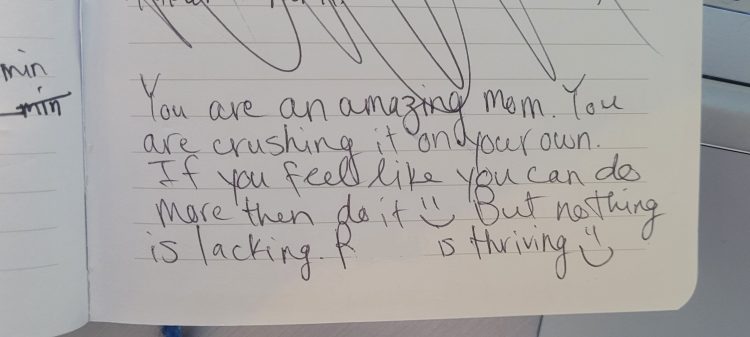 min
min
You are an amazing mom. You
are crushing it on your own.
If you feel like you can do
more then do it :)  But nothing
is lacking. R is thriving :)